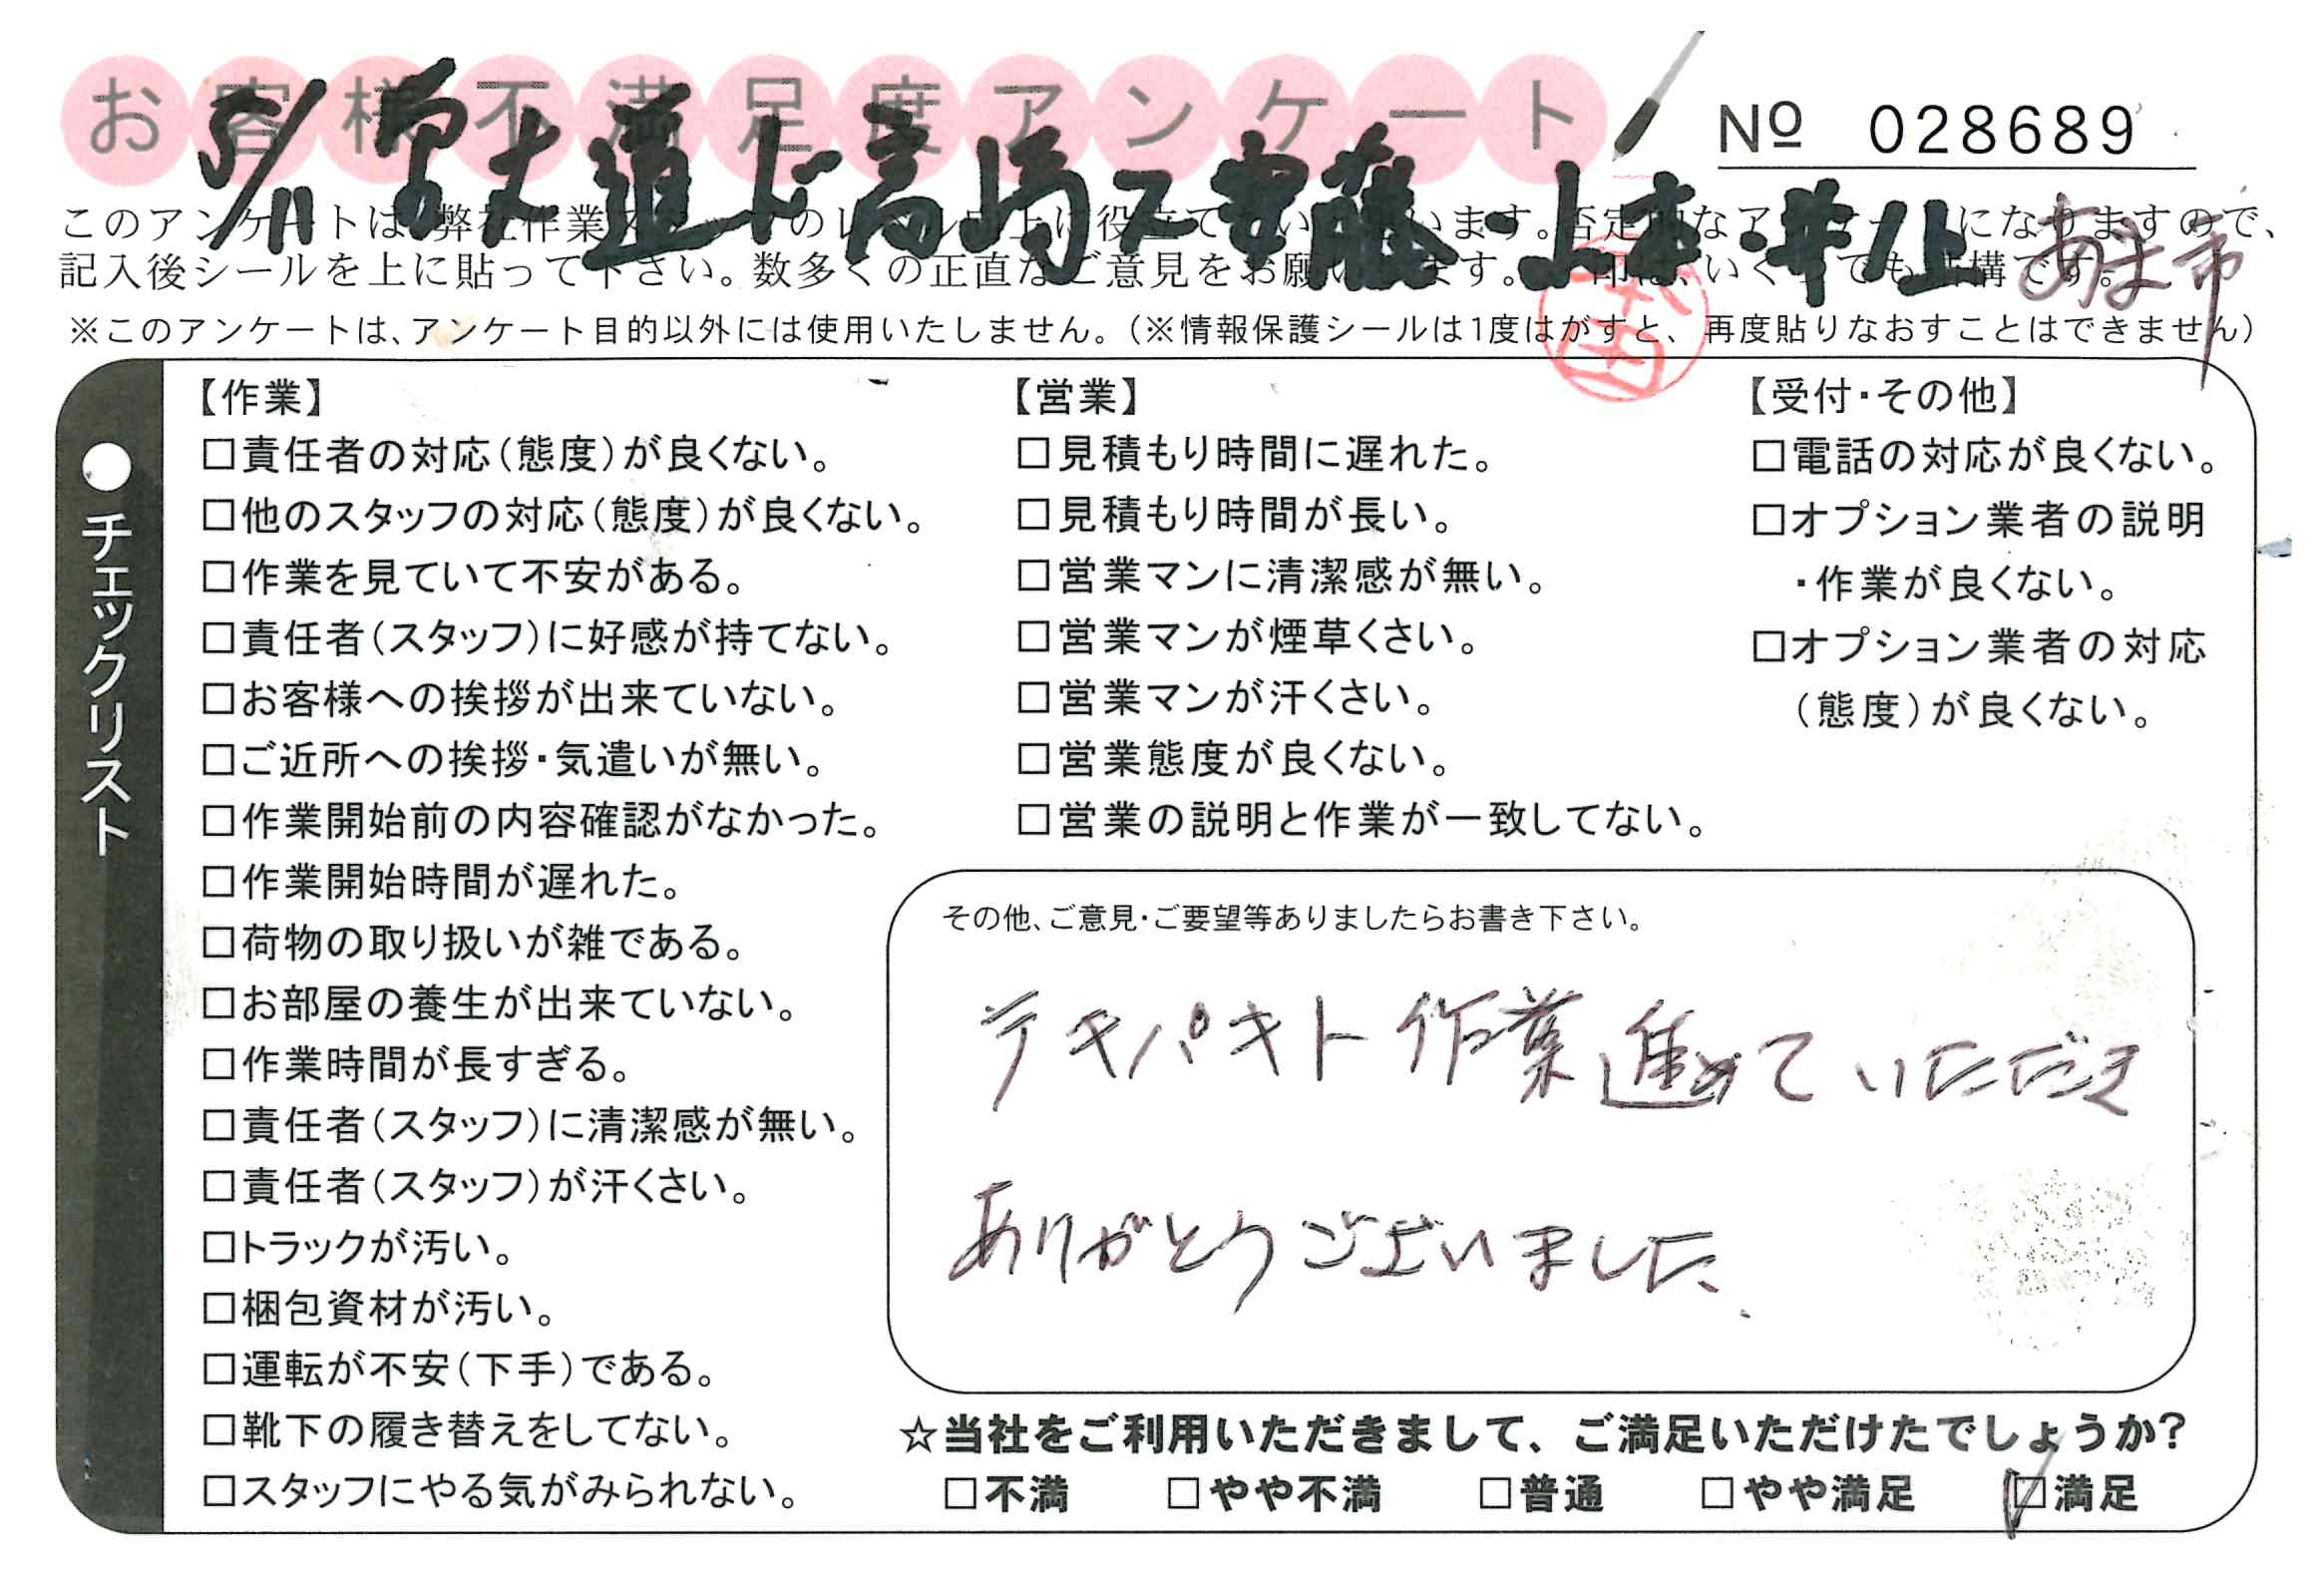 お客様不満足度アンケート
№ 028689
5/11 高嶋 ス 安藤・上本・井上
あま市
このアンケートは、弊社作業スタッフのレベル向上に役立てたいと思います。否定的なアンケートになりますので、
記入後シールを上に貼って下さい。数多くの正直なご意見をお願いします。いくつでも結構です。
※このアンケートは、アンケート目的以外には使用いたしません。(※情報保護シールは1度はがすと、再度貼りなおすことはできません)
●チェックリスト
【作業】
□責任者の対応(態度)が良くない。
□他のスタッフの対応(態度)が良くない。
□作業を見ていて不安がある。
□責任者(スタッフ)に好感が持てない。
□お客様への挨拶が出来ていない。
□ご近所への挨拶・気遣いが無い。
□作業開始前の内容確認がなかった。
□作業開始時間が遅れた。
□荷物の取り扱いが雑である。
□お部屋の養生が出来ていない。
□作業時間が長すぎる。
□責任者(スタッフ)に清潔感が無い。
□責任者(スタッフ)が汗くさい。
□トラックが汚い。
□梱包資材が汚い。
□運転が不安(下手)である。
□靴下の履き替えをしてない。
□スタッフにやる気がみられない。
【営業】
□見積もり時間に遅れた。
□見積もり時間が長い。
□営業マンに清潔感が無い。
□営業マンが煙草くさい。
□営業マンが汗くさい。
□営業態度が良くない。
□営業の説明と作業が一致してない。
【受付・その他】
□電話の対応が良くない。
□オプション業者の説明
・作業が良くない。
□オプション業者の対応
(態度)が良くない。
その他、ご意見・ご要望等ありましたらお書き下さい。
テキパキト作業進めていただき
ありがとうございました.
☆当社をご利用いただきまして、ご満足いただけたでしょうか?
□不満 □やや不満 □普通 □やや満足 ☑満足